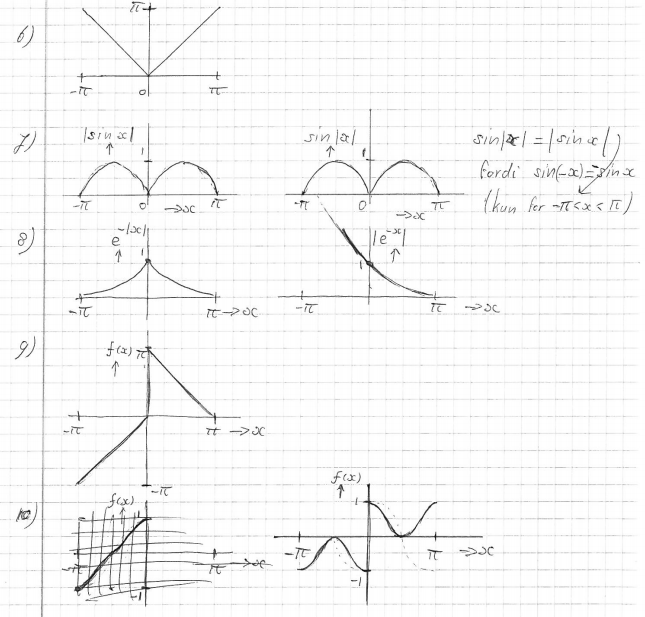 6)
π
-π 0 π
7)
|sin x|
1
-π 0 π → x
sin|x|
1
-π 0 π → x
sin|x| = |sin x|
fordi sin(-x) = -sin x
(kun for -π<x<π)
8)
e^-|x|
1
-π π → x
|e^-x|
1
-π π → x
9)
f(x) π
-π π → x
-π
10)
f(x)
1
-π π → x
-1
f(x)
1
-π π → x
-1